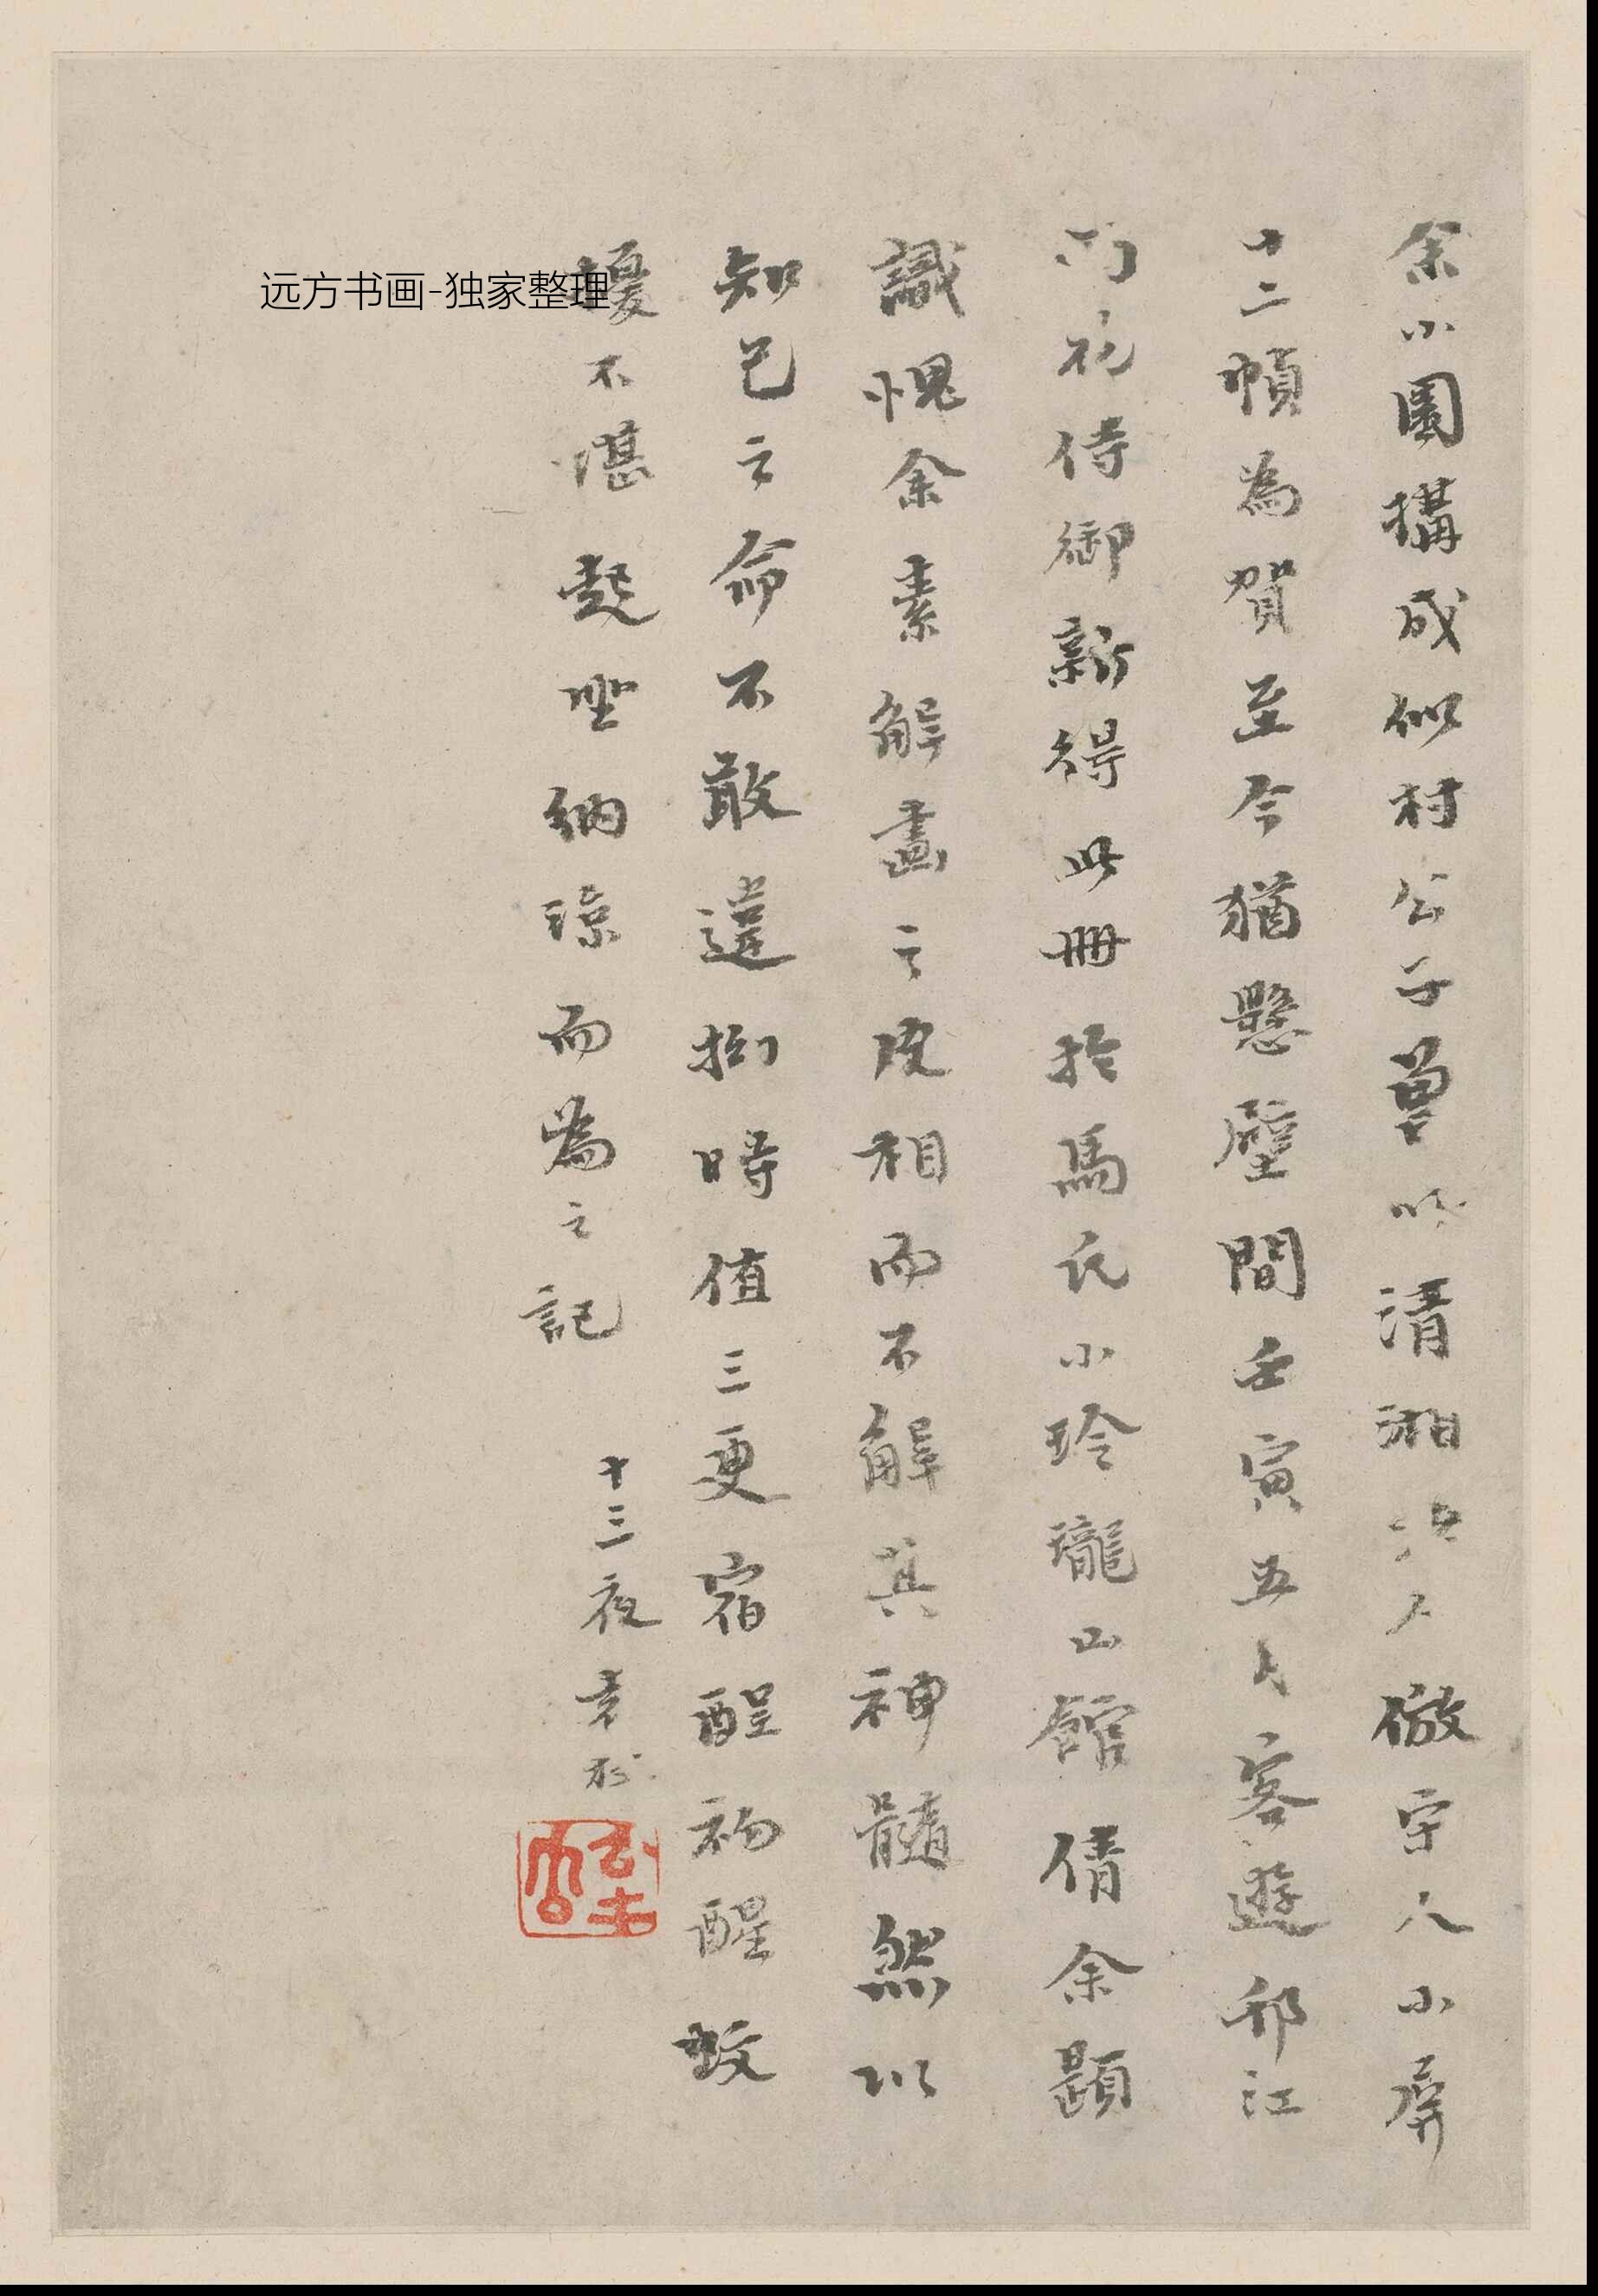 余小園搆成似村公子曽以清湘老人倣宋人小屏
十二幀為賀至今猶懸壁間壬寅五月客遊邗江
門花侍御新得此冊於馬氏小玲瓏山館倩余題
識愧余素解畫之皮相而不解其神髓然以
知己之命不敢違拗時值三更宿酲初醒蚊
擾不堪起坐納涼而為之記
十三夜袁枚
远方书画-独家整理